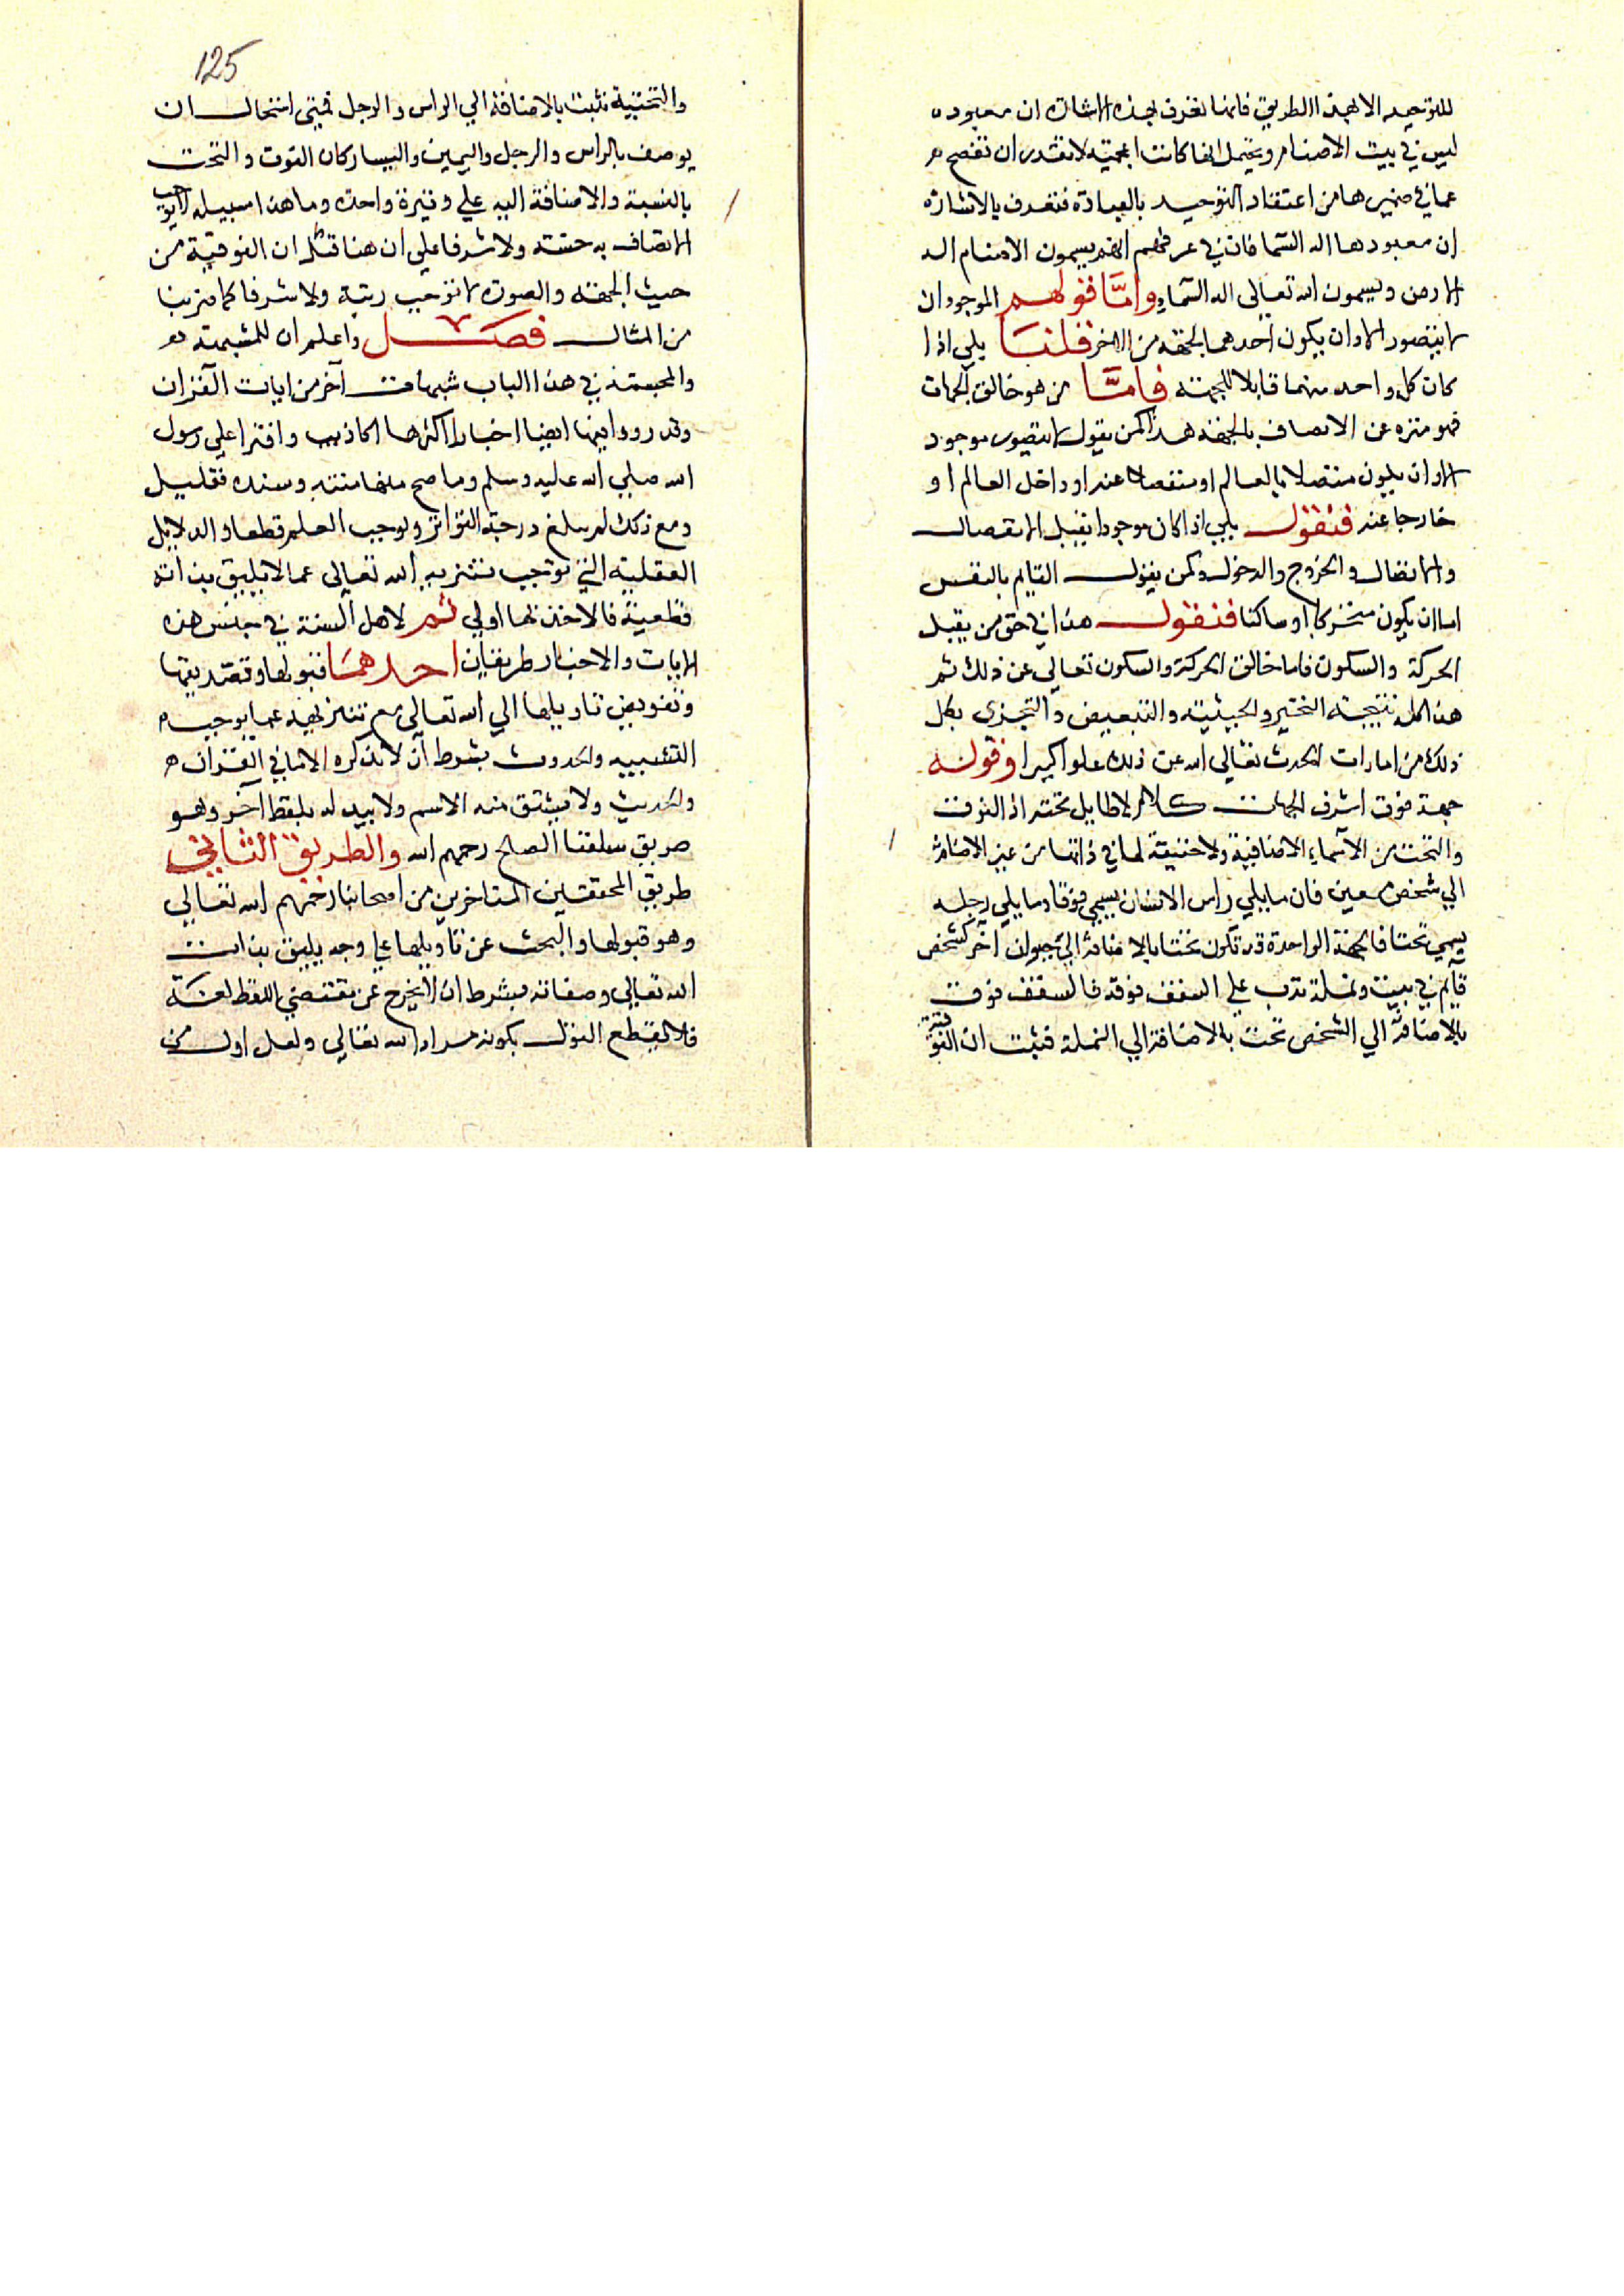 للتوحيد الا بهذا الطريق فانها تعرف بهذه الاشارة ان معبوده
ليس في بيت الاصنام ويحتمل انها كانت اعجمية لا تقدر ان تفصح
عما في ضميرها من اعتقاد التوحيد بالعبادة فتعرف بالاشارة
ان معبودها اله السما فان في عرفهم انهم يسمون الاصنام اله
الارض ويسمون الله تعالى اله السماء واما قولهم الموجودان
لا يتصور الا وان يكون احدهما بجهة من الاخر قلنا بلي اذا
كان كل واحد منهما قابلا للجهة فاما من هو خالق الجهات
فهو منزه عن الاتصاف بالجهة هذا كمن يقول لا يتصور موجود
الا وان يكون متصلا بالعالم او منفصلا عنه او داخل العالم او
خارجا عنه فنقول بلي اذا كان موجودا يقبل الانفصال
والاتصال والخروج والدخول وكمن يقول القايم بالنفس
اما ان يكون متحركا او ساكنا فنقول هذا في حق من يقبل
الحركة والسكون فاما خالق الحركة والسكون تعالي عن ذلك ثم
هذا كله نتيجة التحيز والحيثية والتبعيض والتجزي بكل
ذلك من امارات الحدث تعالي الله عن ذلك علوا كبيرا وقوله
جهة فوق اشرف الجهات كلام لا طايل تحته اذ الفوق
والتحت من الاسماء الاضافية ولا حقيقة لها في ذاتها من غير الاضافة
الي شخص معين فان ما يلي راس الانسان يسمي فوقا وما يلي رجله
يسمي تحتا فالجهة الواحدة قد تكون تحتا بالاضافة الي حيوان اخر كشخص
قايم في بيت ونملة تدب علي السقف فوقه فالسقف فوق
بالاضافة الي الشخص تحت بالاضافة الي النملة فثبت ان الفوقية
125
والتحتية تثبت بالاضافة الي الراس والرجل فمتى استحال ان
يوصف بالراس والرجل واليمين واليسار كان الفوق والتحت
بالنسبة والاضافة اليه علي وتيرة واحدة وما هذا سبيله لا يوجب
الاتصاف به خسة ولا شرفا علي ان هنا قلنا ان الفوقية من
حيث الجهة والصورة لا توجب رتبة ولا شرفا كما ضربنا
من المثال فصل واعلم ان للمشبهة
والمجسمة في هذا الباب شبهات اخر من ايات القران
وقد رووا فيها ايضا اخبارا اكثرها اكاذيب وافترا علي رسول
الله صلي الله عليه وسلم وما صح منها متنه وسنده فقليل
ومع ذلك لم يبلغ درجة التواتر ولوجب العلم قطعا والدلايل
العقلية التي توجب تنزيه الله تعالى عما لا يليق بذاته
قطعية فالاخذ بها اولي ثم لاهل السنة في جنس هذه
الايات والاخبار طريقان احدهما قبولها وتصديقها
وتفويض تاويلها الي الله تعالى مع تنزيهه عما يوجب
التشبيه والحدوث بشرط ان لا نذكره الا بما في القران
والحديث ولا يشتق منه الاسم ولا يبدله بلفظ اخر وهو
طريق سلفنا الصالح رحمهم الله والطريق الثاني
طريق المحققين المتاخرين من اصحابنا رحمهم الله تعالي
وهو قبولها والبحث عن تاويلها علي وجه يليق بذات
الله تعالي وصفاته بشرط ان لا يخرج عن مقتضي اللفظ لغة
فلا نقطع القول بكونه مراد الله تعالي ولعل اول من